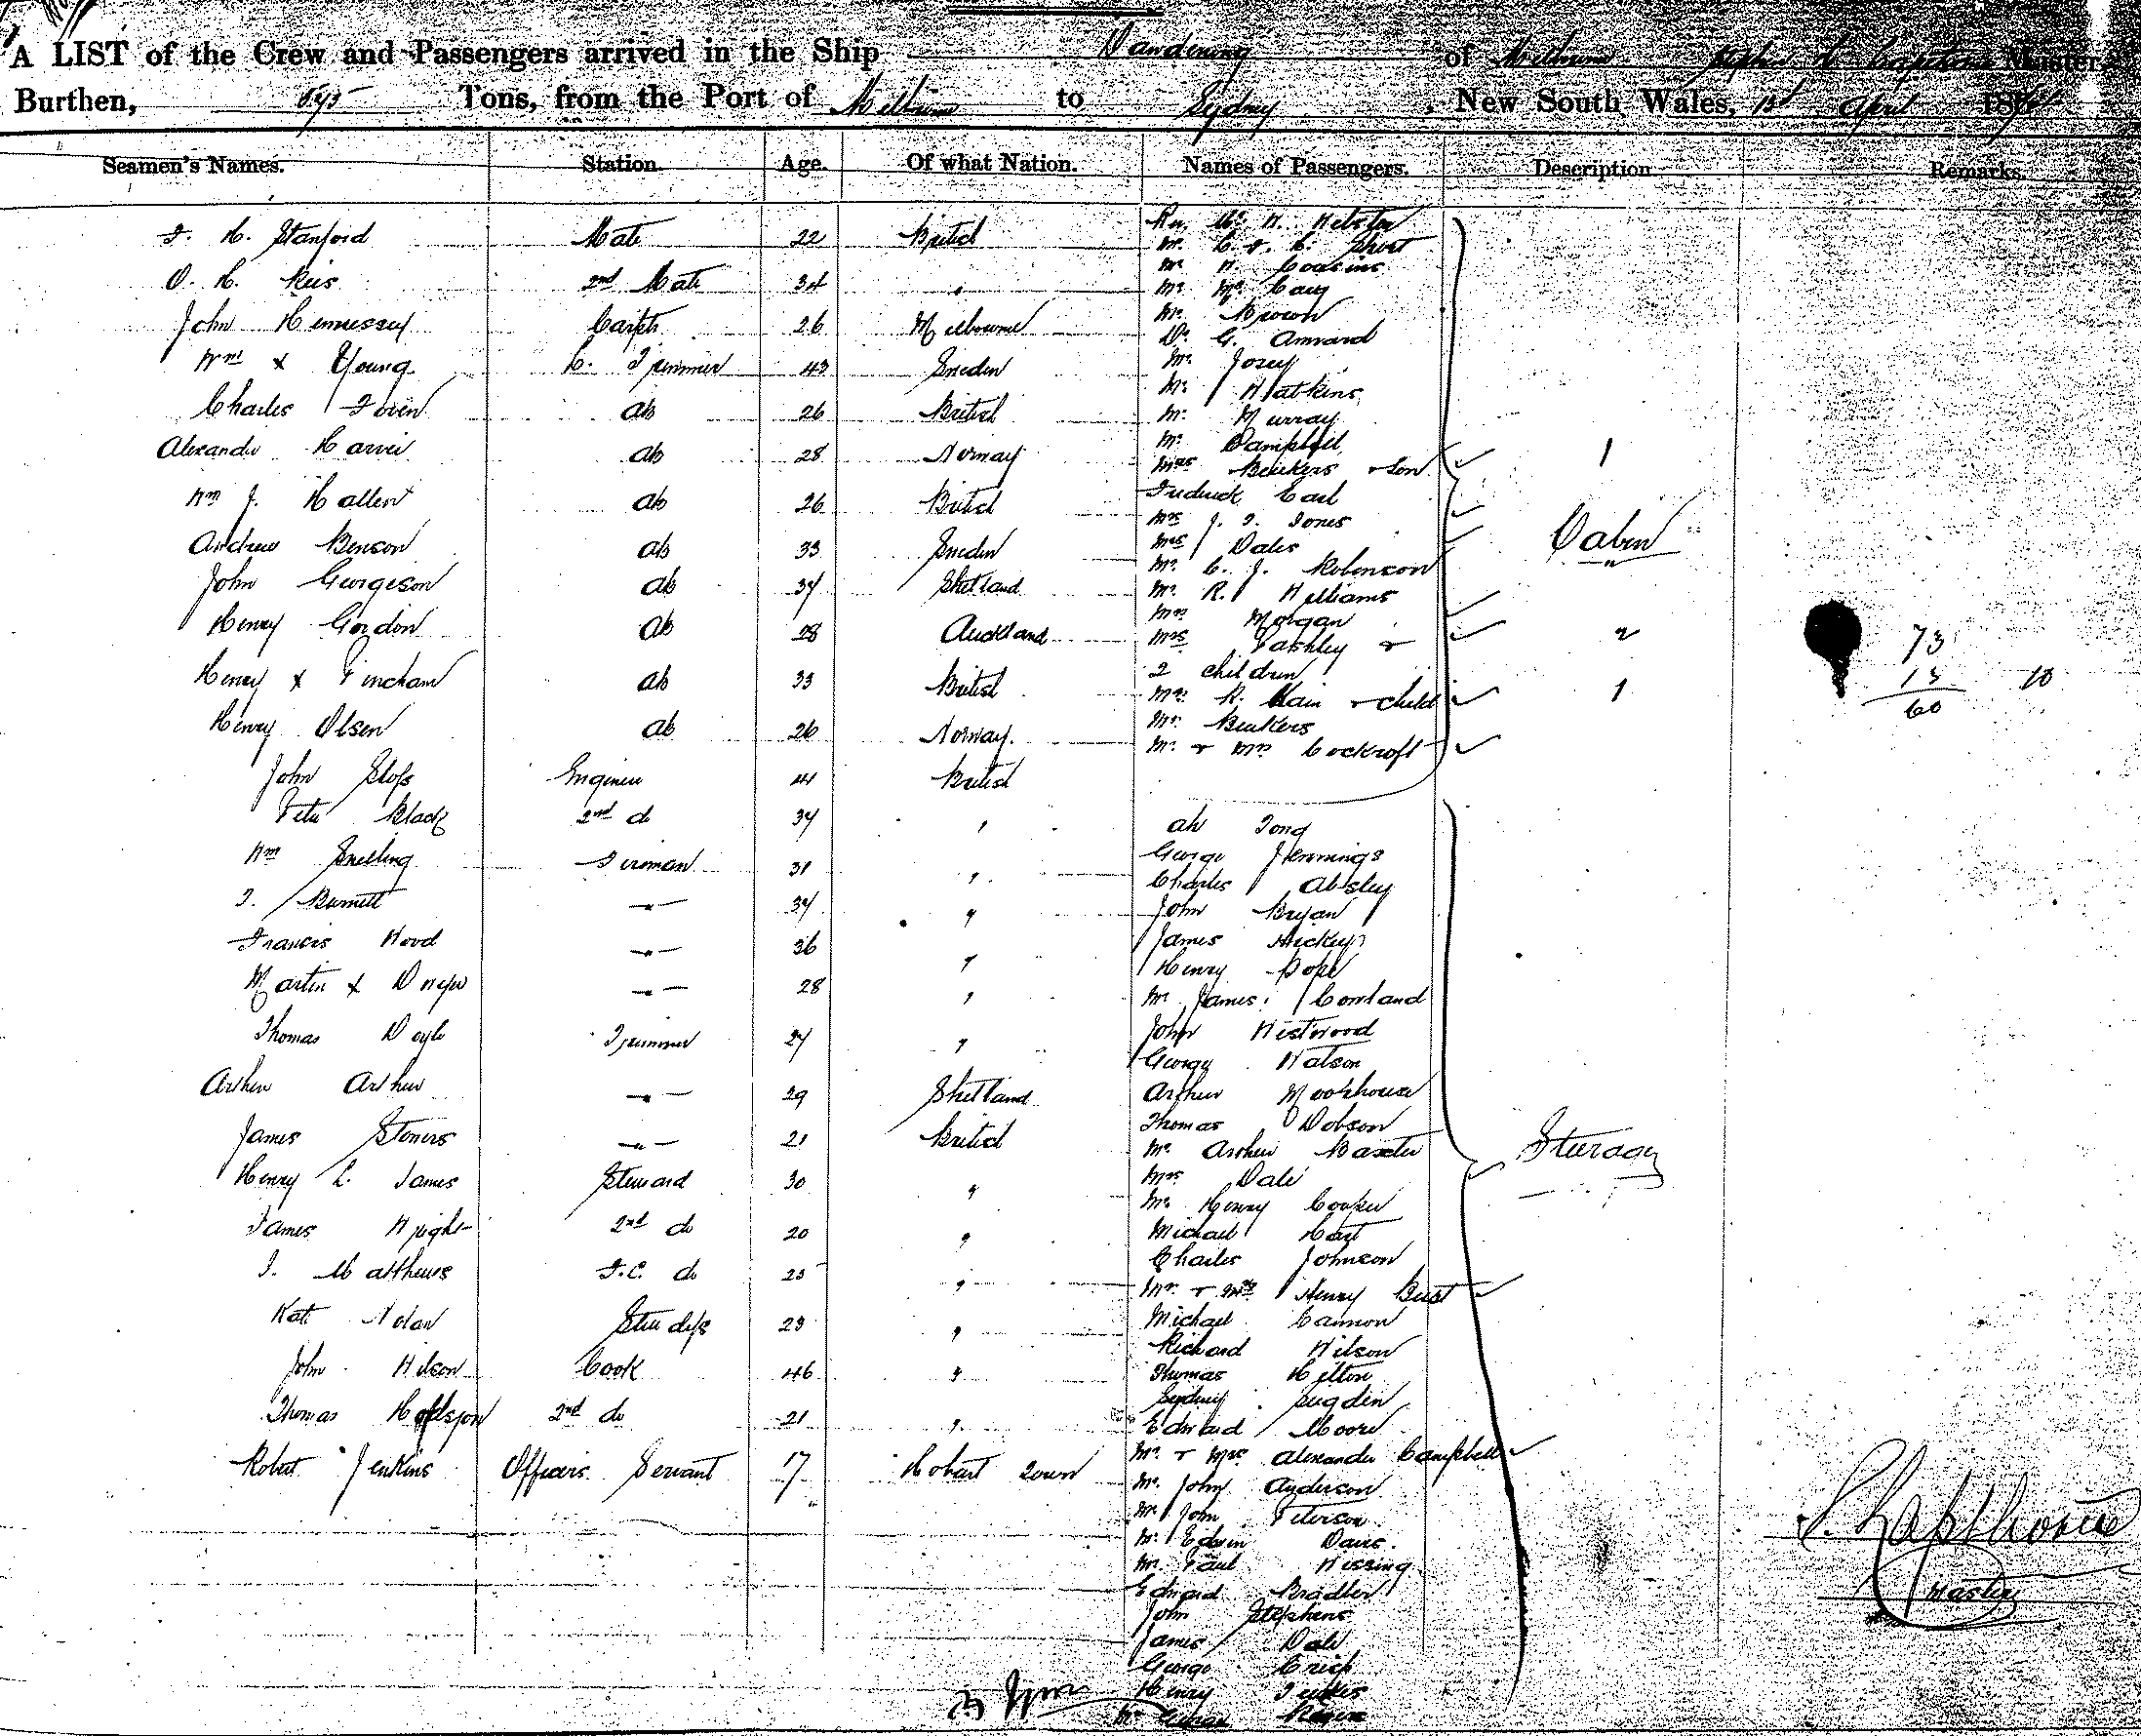 A LIST of the Crew and Passengers arrived in the Ship Dandenong of Melbourne Master,
Burthen, Tons, from the Port of Melbourne to Sydney, New South Wales, April 187
Seamen's Names. Station. Age. Of what Nation. Names of Passengers. Description Remarks.
Stanford Mate 22 British
2nd Mate 34 "
John Hennessy Carptr 26 Melbourne
Wm x Young L. Trimmer 43 Sweden
Charles ab 26 British
Alexander Harvie ab 28 Norway
Wm J. Hallent ab 26 British
Andrew Benson ab 33 Sweden
John Georgeson ab 37 Shetland
Henry Gordon ab 28 Auckland
Henry x Fincham ab 33 British
Henry Olsen ab 26 Norway
John Engineer 41 British
Peter Black 2nd do 37 "
Wm Snelling Fireman 31 "
T. Burnett " 37 "
Francis Wood " 36 "
Martin x Dwyer " 28 "
Thomas Doyle Trimmer 27 "
Arthur Arthur " 29 Shetland
James Stoners " 21 British
Henry L. James Steward 30 "
James Wright 2nd do 20 "
T. Matthews F.C. do 25 "
Kate Nolan Stewdess 23 "
John Wilson Cook 46 "
Thomas 2nd do 21 "
Robert Jenkins Officers Servant 17 Hobart Town
Webster
Mr C. & C. Short
Mr Cousins
Mr Mc
Mr Brown
Dr G.
Mr
Mr Watkins
Mr Murray
Mr Campbell
Mrs Beukers & Son 1
Frederick Earl
Mrs J. T. Jones
Mrs Dales
Mr C. J. Robinson
Mr R. Williams
Mrs Morgan
Mrs Pashley &
2 children 2
Mrs R. Main & child 1
Mr Beukers
Mr & Mrs Cockroft
Cabin
73
13 10
60
ah Tong
George Jennings
Charles Abisley
John Bryan
James Hickey
Henry Pope
Mr James Cowland
John Westwood
George Watson
Arthur Moorhouse
Thomas Dobson
Mr Arthur Baxter
Mrs Dale
Mr Henry Cooper
Michael
Charles Johnson
Mr & Mrs Henry Bust
Michael Cannon
Richard Wilson
Thomas Hilton
Sydney Sugden
Edward Moore
Mr & Mrs Alexander Campbell
Mr John Anderson
Mr John Peterson
Mr Edwin Davis
Mr Paul Wissing
Edward Bradley
John Stephens
James Dale
George
Henry
Steerage
S. Lapthorne
Master